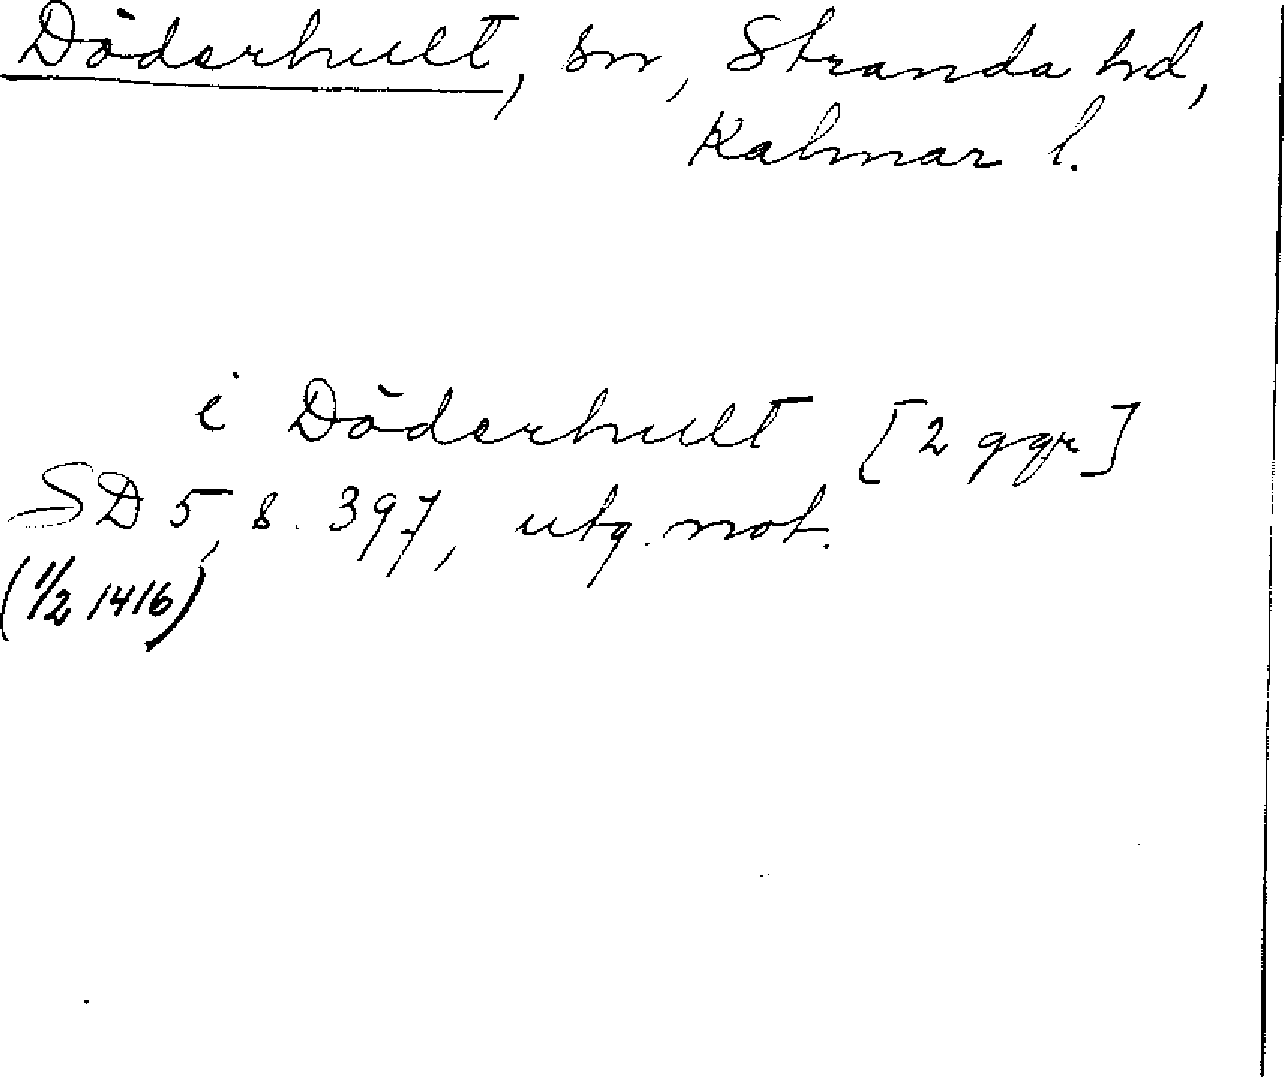 Döderhult, sn, Stranda hd,
Kalmar l.
i Döderhult [2 ggr]
SD 5, s. 397, utg. not.
(1/2 1416)